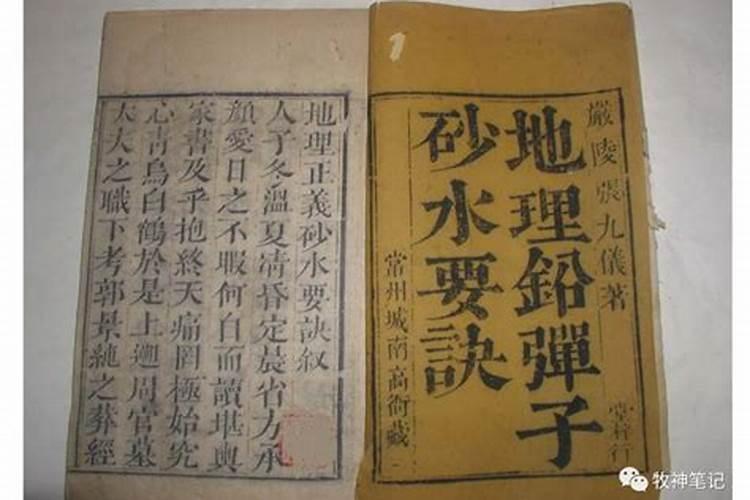 嚴陵張九儀著
地理鉛彈子
砂水要訣
常州城南高衙藏
堂梓行
地理正義砂水要訣叙
人子冬溫夏凊昏定晨省方承
顏愛日之不暇何自而讀堪輿
家書及乎抱終天痛罔極始究
心青烏白鶴於是上遡周官墓
大夫之職下考郭景純之葬經
牧神笔记